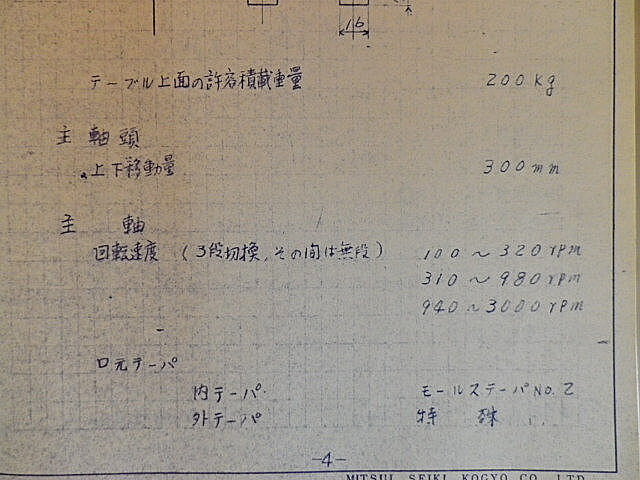 16
テーブル上面の許容積載重量 200Kg
主軸頭
上下移動量 300mm
主軸
回転速度 (3段切換,その間は無段) 100~320rpm
310~980rpm
940~3000rpm
口元テーパ
内テーパ モールステーパNo.2
外テーパ 特殊
-4-
MITSUI SEIKI KOGYO CO., LTD.